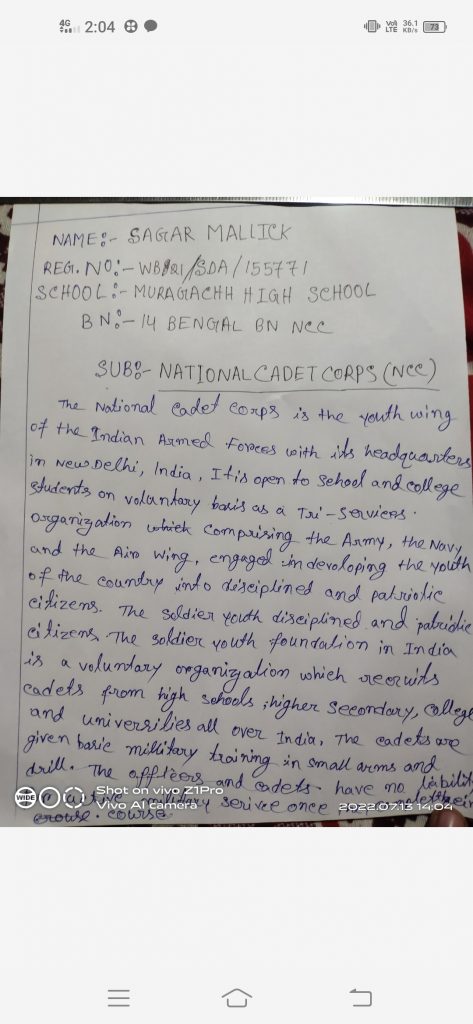 4G 2:04 Vo) LTE 36.1 KB/s 73
NAME:- SAGAR MALLICK
REG. NO:- WB21/SDA/155771
SCHOOL:- MURAGACHH HIGH SCHOOL
BN:- 14 BENGAL BN NCC
SUB:- NATIONAL CADET CORPS (NCC)
The National Cadet Corps is the youth wing
of the Indian Armed Forces with its headquarters
in New Delhi, India, It is open to School and college
students on voluntary basis as a Tri-Serviers.
organization which Comprising the Army, the Navy
and the Air Wing, engaged in devoloping the youth
of the country into disciplined and patriotic
citizens. The Soldier youth disciplined and patriotic
citizens The soldier youth foundation in India
is a voluntary organization which recruits
cadets from high schools, higher Secondary, College
and universities all over India, The cadets are
given basic millitary training in small arms and
drill. The officers and cadets have no liabilit
military serivce once their
crouse. course
WIDE Shot on vivo Z1Pro
Vivo AI camera 2022.07.13 14:04